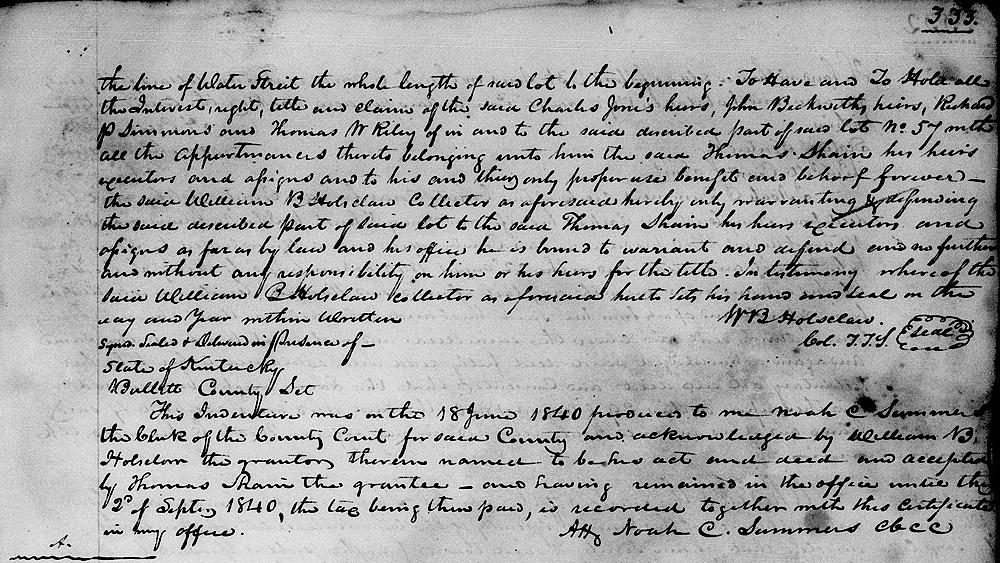 333.
the line of Water Street the whole length of said lot to the beginning. To Have and To Hold all
the Interest, right, title and claim of the said Charles Jones heirs, John Beckwiths heirs, Richard
P Simmons and Thomas W Riley of in and to the said described part of said lot No. 57 with
all the appurtenances thereto belonging unto him the said Thomas Shain his heirs
executors and assigns and to his and their only proper use benefit and behoof forever –
the said William B Holsclaw Collector as aforesaid hereby only warranting & defending
the said described part of said lot to the said Thomas Shain his heirs executors and
assigns as far as by law and his office he is bound to warrant and defend and no further
and without any responsibility on him or his heirs for the title. In testimony whereof the
said William B Holsclaw Collector as aforesaid hereto sets his hand and seal on the
day and Year within Written
W B Holsclaw. Seal
Col. T.T.S.
Signed Sealed & Delivered in Presence of –
State of Kentucky
Bullitt County Sct
This Indenture was on the 18 June 1840 produced to me Noah C Summers
the Clerk of the County Court for said County and acknowledged by William B.
Holsclaw the grantor therein named to be his act and deed and accepted
by Thomas Shain the grantee – and having remained in the office until the
2d of Septr 1840, the tax being then paid, is recorded together with this Certificate
in my office.
Att Noah C. Summers cbcc
A.